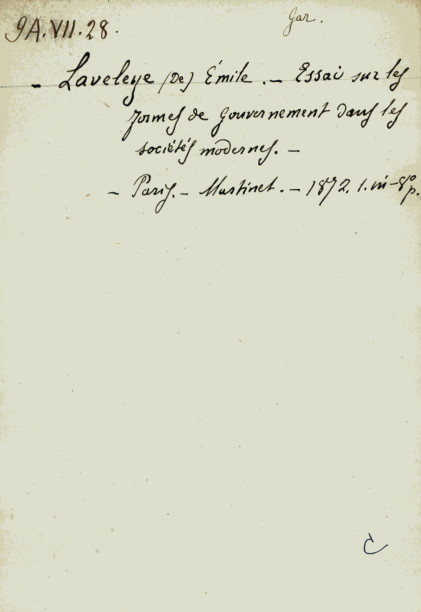 Gar.
9A.VII.28.
- Laveleye (De) Émile. - Essai sur les
formes de gouvernement dans les
sociétés modernes. -
- Paris. - Martinet. - 1872. 1. in-8º p.
C